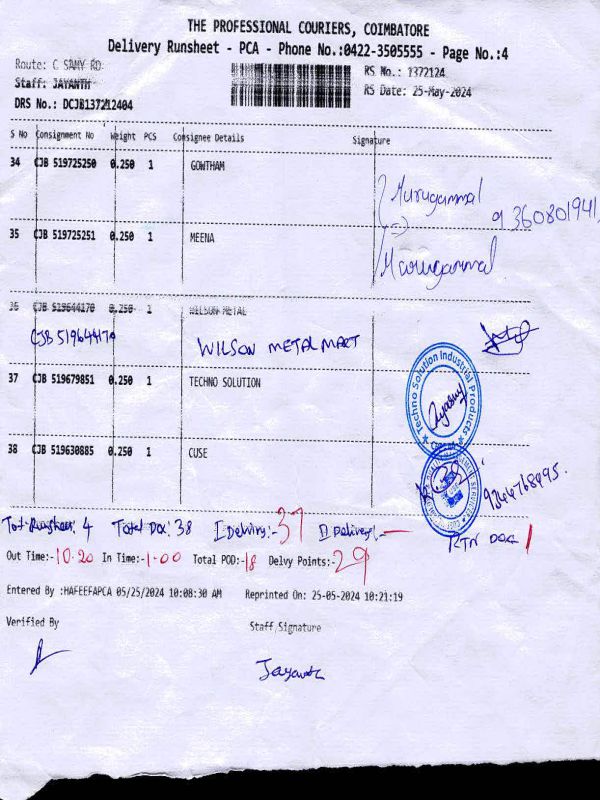 THE PROFESSIONAL COURIERS, COIMBATORE
Delivery Runsheet - PCA - Phone No.:0422-3505555 - Page No.:4
Route: C SAMY RD
RS No.: 1372124
Staff: JAYANTH
RS Date: 25-May-2024
DRS No.: DCJB137212404
S No Consignment No Weight PCS Consignee Details Signature
34 CJB 519725250 0.250 1 GOWTHAM
Murugammal
9360801941
35 CJB 519725251 0.250 1 MEENA
Murugammal
36 CJB 519644170 0.250 1 WILSON METAL
CJB 519644170 WILSON METAL MART
37 CJB 519679851 0.250 1 TECHNO SOLUTION
Techno Solution Industrial Products
38 CJB 519630885 0.250 1 CUSE
9344768495.
Tot. Runsheet: 4 Total Dox: 38 I Delivery:- 37 II Delivery:- —
RTN DOX 1
Out Time:- 10-20 In Time:- 1-00 Total POD:- 18 Delvy Points:- 29
Entered By :HAFEEFAPCA 05/25/2024 10:08:30 AM Reprinted On: 25-05-2024 10:21:19
Verified By Staff Signature
Jayanth